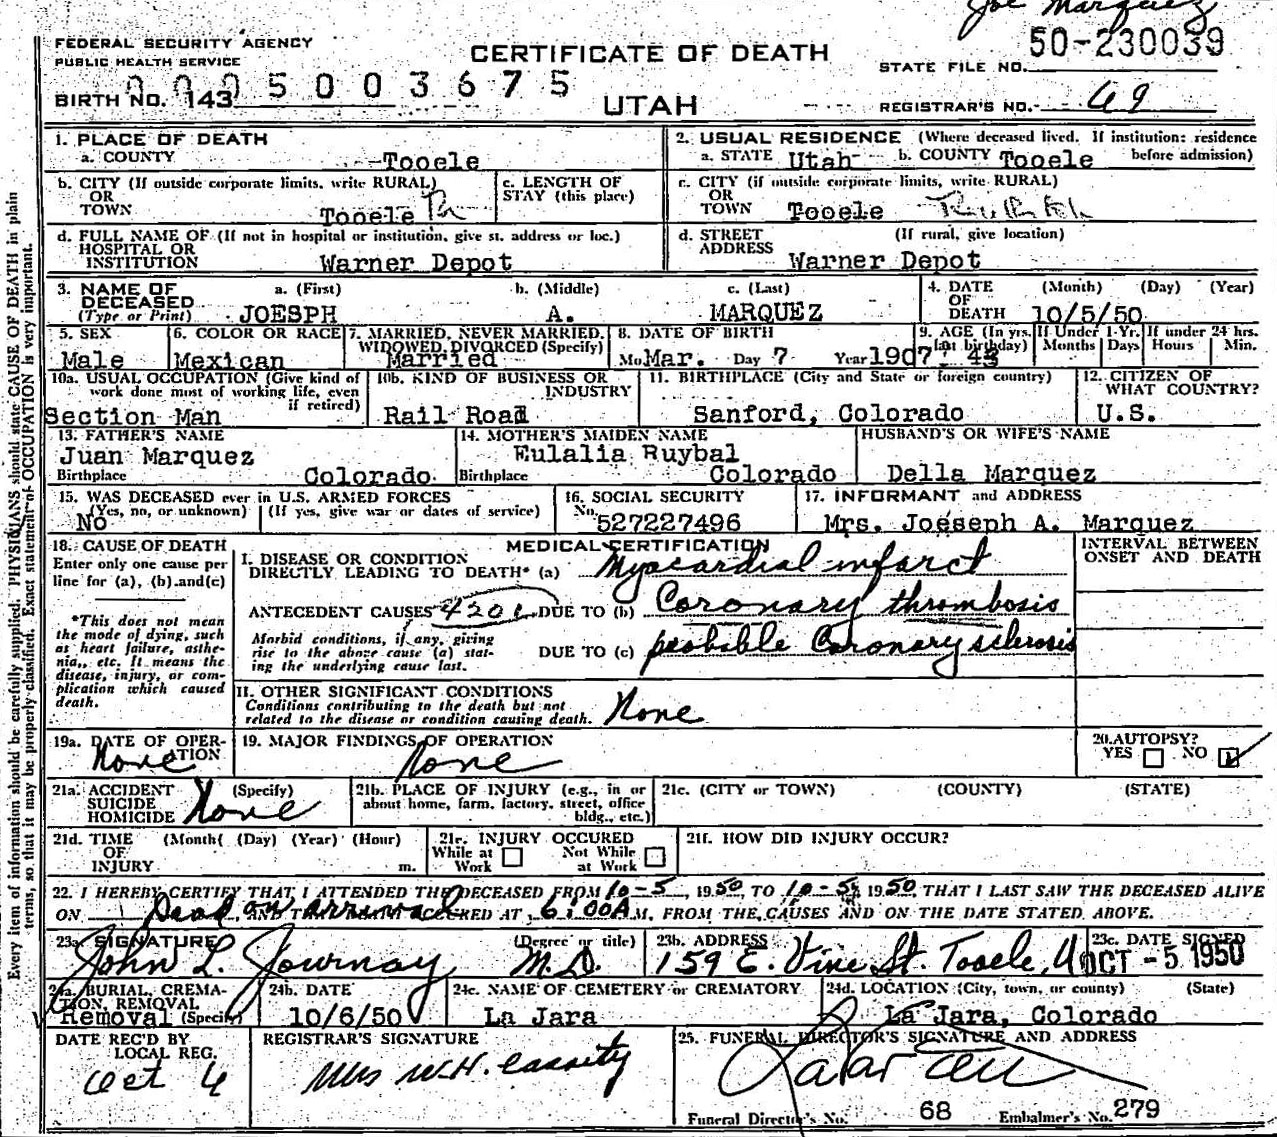 Joe Marquez
FEDERAL SECURITY AGENCY
PUBLIC HEALTH SERVICE
CERTIFICATE OF DEATH
50-230039
STATE FILE NO.
0005003675
BIRTH NO. 143
UTAH
REGISTRAR'S NO. 69
1. PLACE OF DEATH
a. COUNTY Tooele
2. USUAL RESIDENCE (Where deceased lived. If institution: residence before admission)
a. STATE Utah b. COUNTY Tooele
b. CITY (If outside corporate limits, write RURAL)
OR
TOWN Tooele
c. LENGTH OF
STAY (this place)
c. CITY (if outside corporate limits, write RURAL)
OR
TOWN Tooele
d. FULL NAME OF (If not in hospital or institution, give st. address or loc.)
HOSPITAL OR
INSTITUTION Warner Depot
d. STREET (If rural, give location)
ADDRESS Warner Depot
3. NAME OF DECEASED (Type or Print)
a. (First) b. (Middle) c. (Last)
JOESPH A. MARQUEZ
4. DATE OF DEATH (Month) (Day) (Year)
10/5/50
5. SEX
Male
6. COLOR OR RACE
Mexican
7. MARRIED, NEVER MARRIED, WIDOWED, DIVORCED (Specify)
Married
8. DATE OF BIRTH
Mo. Mar. Day 7 Year 1907
9. AGE (In yrs. last birthday) 43
If Under 1 Yr. Months Days
If under 24 hrs. Hours Min.
10a. USUAL OCCUPATION (Give kind of work done most of working life, even if retired)
Section Man
10b. KIND OF BUSINESS OR INDUSTRY
Rail Road
11. BIRTHPLACE (City and State or foreign country)
Sanford, Colorado
12. CITIZEN OF WHAT COUNTRY?
U.S.
13. FATHER'S NAME
Juan Marquez
Birthplace Colorado
14. MOTHER'S MAIDEN NAME
Eulalia Ruybal
Birthplace Colorado
HUSBAND'S OR WIFE'S NAME
Della Marquez
15. WAS DECEASED ever in U.S. ARMED FORCES
(Yes, no, or unknown) (If yes, give war or dates of service)
No
16. SOCIAL SECURITY
No. 527227496
17. INFORMANT and ADDRESS
Mrs. Joeseph A. Marquez
18. CAUSE OF DEATH
Enter only one cause per line for (a), (b) and (c)
*This does not mean the mode of dying, such as heart failure, asthenia, etc. It means the disease, injury, or complication which caused death.
MEDICAL CERTIFICATION
INTERVAL BETWEEN ONSET AND DEATH
I. DISEASE OR CONDITION
DIRECTLY LEADING TO DEATH* (a) Myocardial infarct
ANTECEDENT CAUSES 4201 DUE TO (b) Coronary thrombosis
Morbid conditions, if any, giving rise to the above cause (a) stating the underlying cause last.
DUE TO (c) probable Coronary sclerosis
II. OTHER SIGNIFICANT CONDITIONS
Conditions contributing to the death but not related to the disease or condition causing death. None
19a. DATE OF OPERATION
None
19. MAJOR FINDINGS OF OPERATION
None
20. AUTOPSY?
YES NO
21a. ACCIDENT SUICIDE HOMICIDE (Specify)
None
21b. PLACE OF INJURY (e.g., in or about home, farm, factory, street, office bldg., etc.)
21c. (CITY or TOWN) (COUNTY) (STATE)
21d. TIME OF INJURY (Month( (Day) (Year) (Hour) m.
21e. INJURY OCCURED
While at Work Not While at Work
21f. HOW DID INJURY OCCUR?
22. I HEREBY CERTIFY THAT I ATTENDED THE DECEASED FROM 10-5, 1950 TO 10-5, 1950 THAT I LAST SAW THE DECEASED ALIVE
ON Dead on arrival, AND THAT DEATH OCCURED AT 6:00 A M, FROM THE CAUSES AND ON THE DATE STATED ABOVE.
23a. SIGNATURE (Degree or title)
John L. Journay, M.D.
23b. ADDRESS
159 E. Vine St. Tooele, U
23c. DATE SIGNED
OCT - 5 1950
24a. BURIAL, CREMATION, REMOVAL (Specify)
Removal
24b. DATE
10/6/50
24c. NAME OF CEMETERY or CREMATORY
La Jara
24d. LOCATION (City, town, or county) (State)
La Jara, Colorado
DATE REC'D BY LOCAL REG.
Oct 6
REGISTRAR'S SIGNATURE
Mrs W.H. Cassity
25. FUNERAL DIRECTOR'S SIGNATURE AND ADDRESS
Funeral Director's No. 68 Embalmer's No. 279
Every item of information should be carefully supplied. PHYSICIANS should state CAUSE OF DEATH in plain
terms, so that it may be properly classified. Exact statement of OCCUPATION is very important.